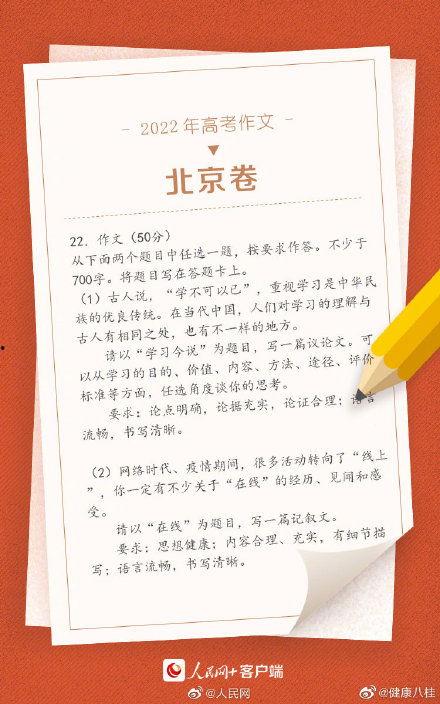 - 2022年高考作文 -
北京卷
22. 作文（50分）
从下面两个题目中任选一题，按要求作答。不少于
700字。将题目写在答题卡上。
（1）古人说，“学不可以已”，重视学习是中华民
族的优良传统。在当代中国，人们对学习的理解与
古人有相同之处，也有不一样的地方。
请以“学习今说”为题目，写一篇议论文。可
以从学习的目的、价值、内容、方法、途径、评价
标准等方面，任选角度谈你的思考。
要求：论点明确，论据充实，论证合理；语言
流畅，书写清晰。
（2）网络时代、疫情期间，很多活动转向了“线上
”，你一定有不少关于“在线”的经历、见闻和感
受。
请以“在线”为题目，写一篇记叙文。
要求：思想健康；内容合理、充实，有细节描
写；语言流畅，书写清晰。
人民网+客户端
@人民网
@健康八桂